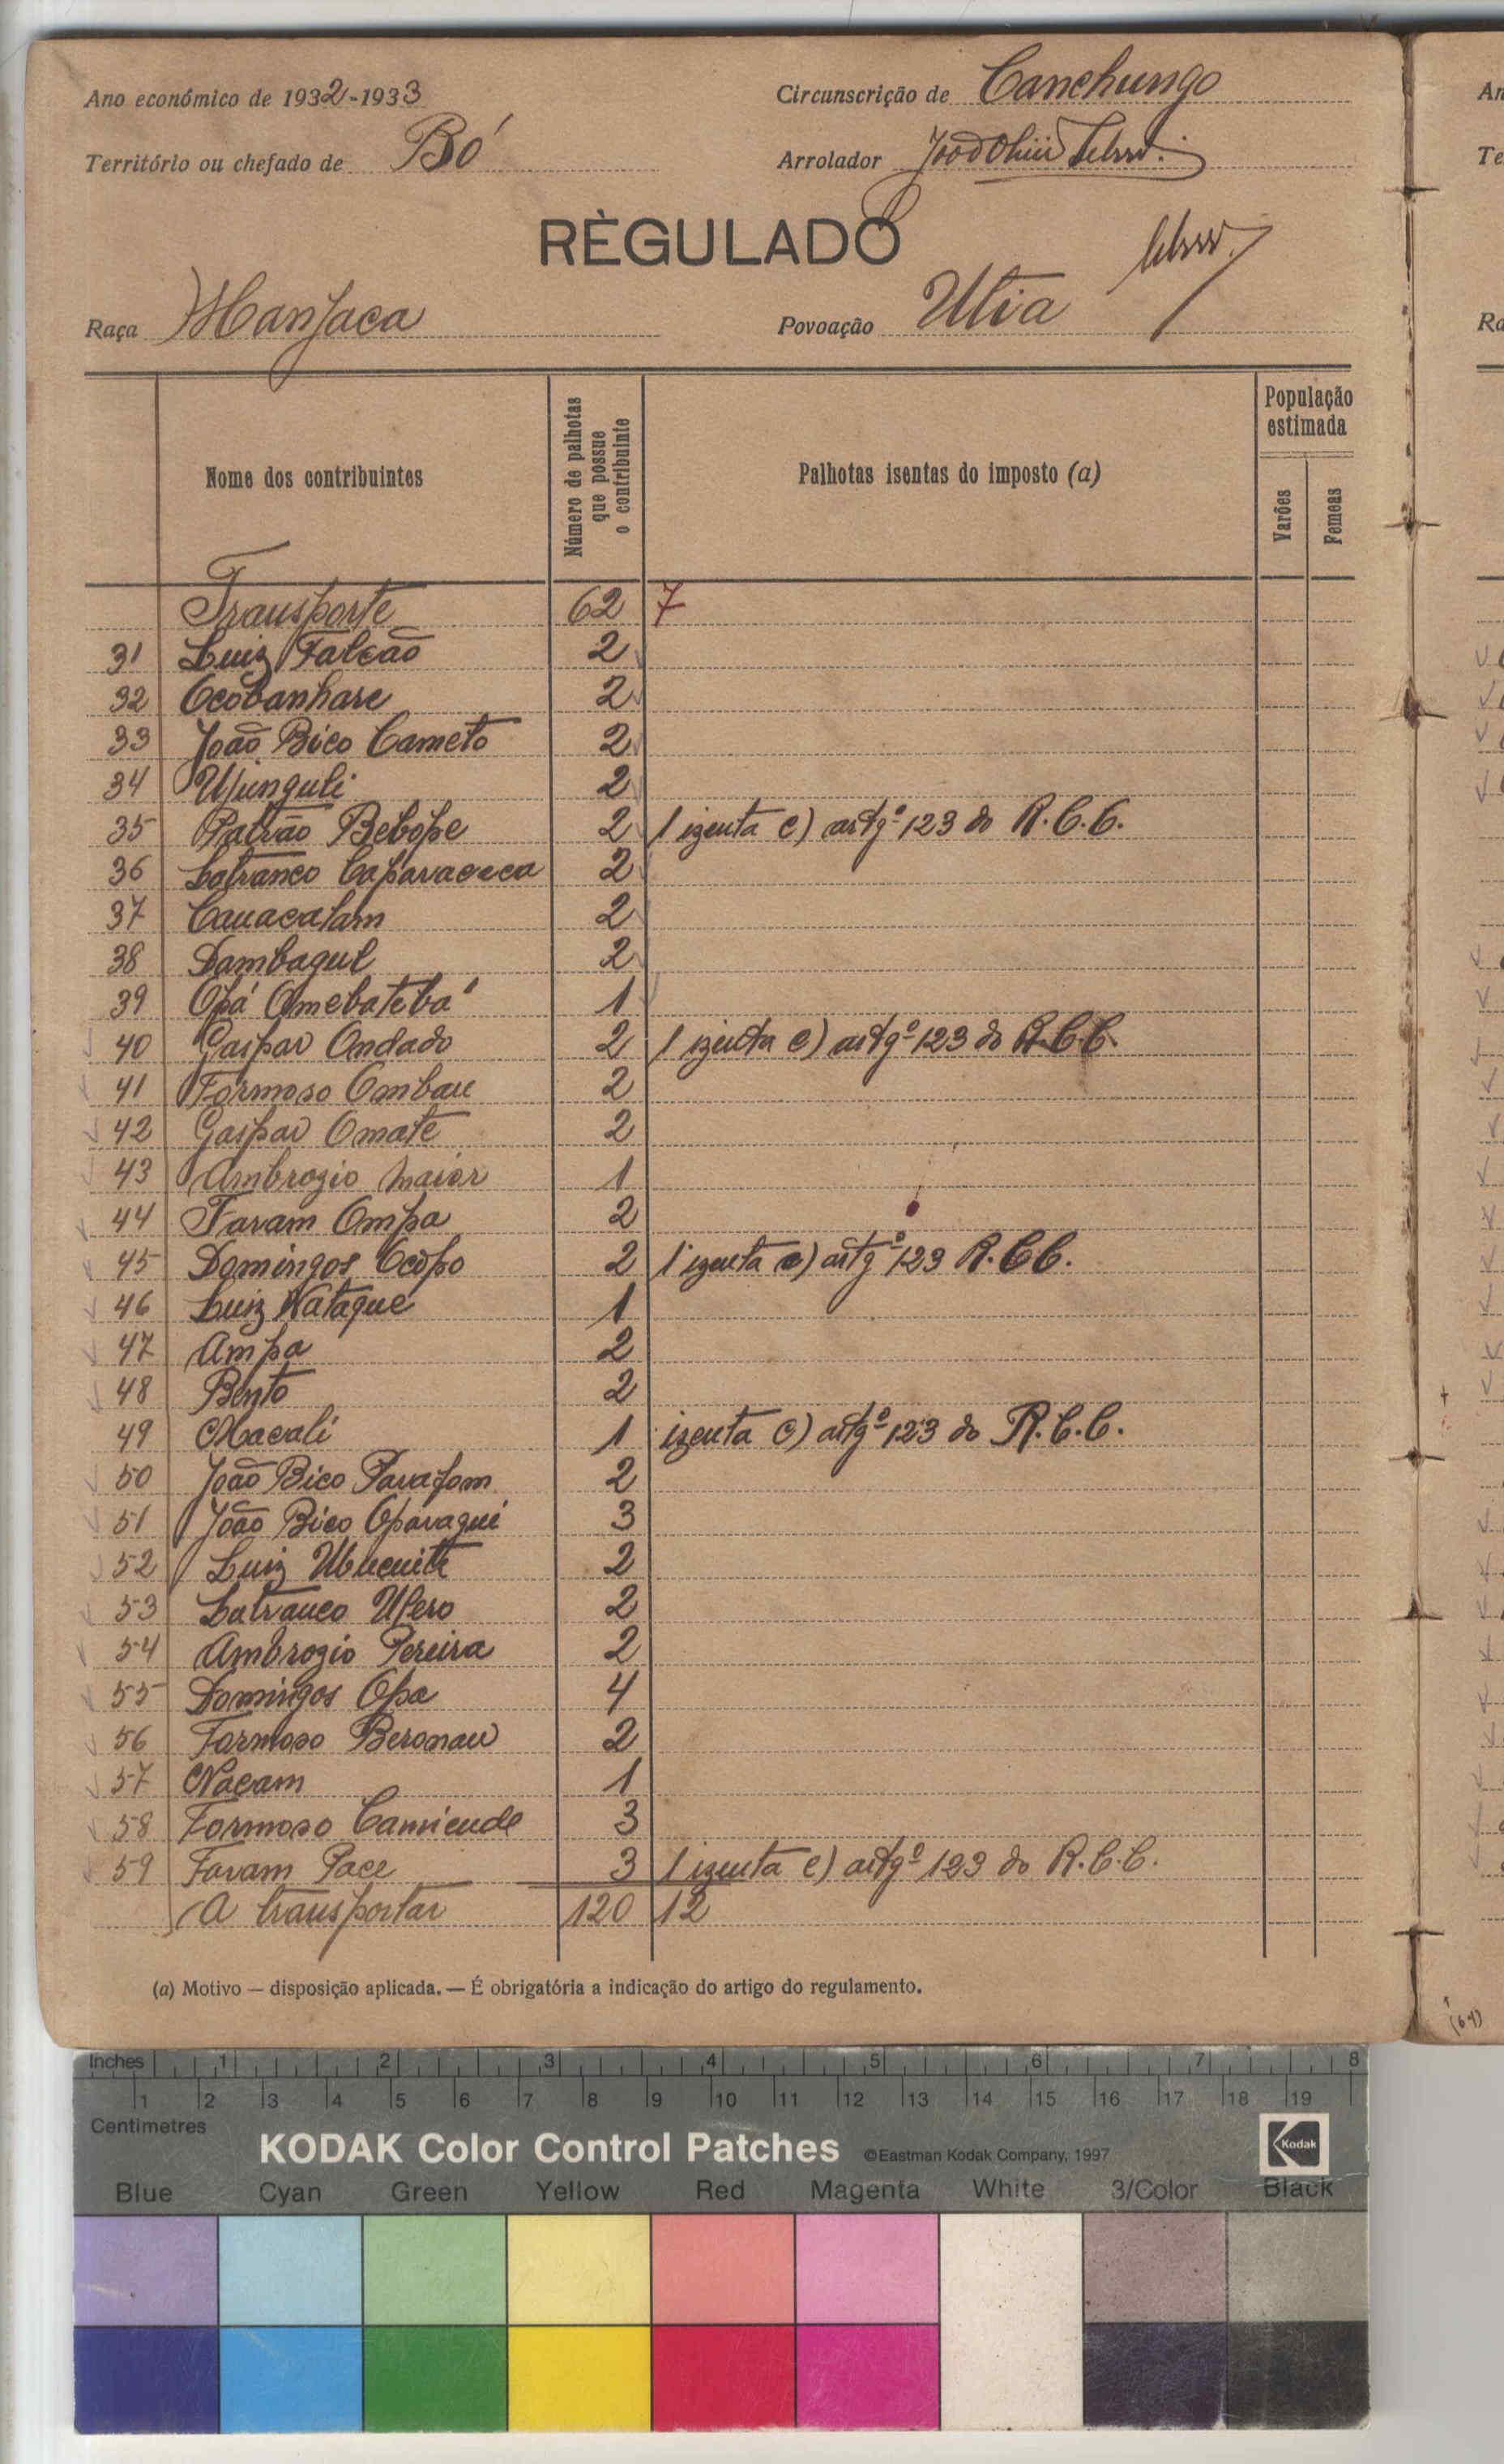 Ano económico de 1932-1933
Circunscrição de Canchungo
Território ou chefado de Bó
Arrolador
RÈGULADO
Raça Manjaca
Povoação Utia
Nome dos contribuintes
Número de palhotas que possue o contribuinte
Palhotas isentas do imposto (a)
População estimada
Varões
Femeas
Transporte 62 7
31 Luiz Falcão 2
32 Ocobanhare 2
33 João Bico Cameto 2
34 Ujunguli 2
35 Patrão Bebope 2 1 izenta c) artgº 123 do R.C.C.
36 Latranco 2
37 Cauacalam 2
38 Dambagul 2
39 Opá Omebatebá 1
40 Gaspar Ondado 2 1 izenta c) artgº 123 do R.C.C.
41 Formoso Ombau 2
42 Gaspar Omate 2
43 Ambrogio maior 1
44 Favam Ompa 2
45 Domingos Ocopo 2 1 izenta c) artgº 123 R.C.C.
46 Luiz Nataque 1
47 Ampa 2
48 Bento 2
49 Macali 1 izenta c) artgº 123 do R.C.C.
50 João Bico Pavafom 2
51 João Bico Opavagui 3
52 Luiz Ubucuite 2
53 Latranco Upero 2
54 Ambrogio Pereira 2
55 Domingos Opa 4
56 Formoso Beronau 2
57 Nacam 1
58 Formoso Camiende 3
59 Favam Pace 3 1 izenta c) artgº 123 do R.C.C.
A transportar 120 12
(a) Motivo — disposição aplicada. — É obrigatória a indicação do artigo do regulamento.
(64)
Inches 1 2 3 4 5 6 7 8
1 2 3 4 5 6 7 8 9 10 11 12 13 14 15 16 17 18 19
Centimetres
KODAK Color Control Patches ©Eastman Kodak Company, 1997 Kodak
Blue Cyan Green Yellow Red Magenta White 3/Color Black